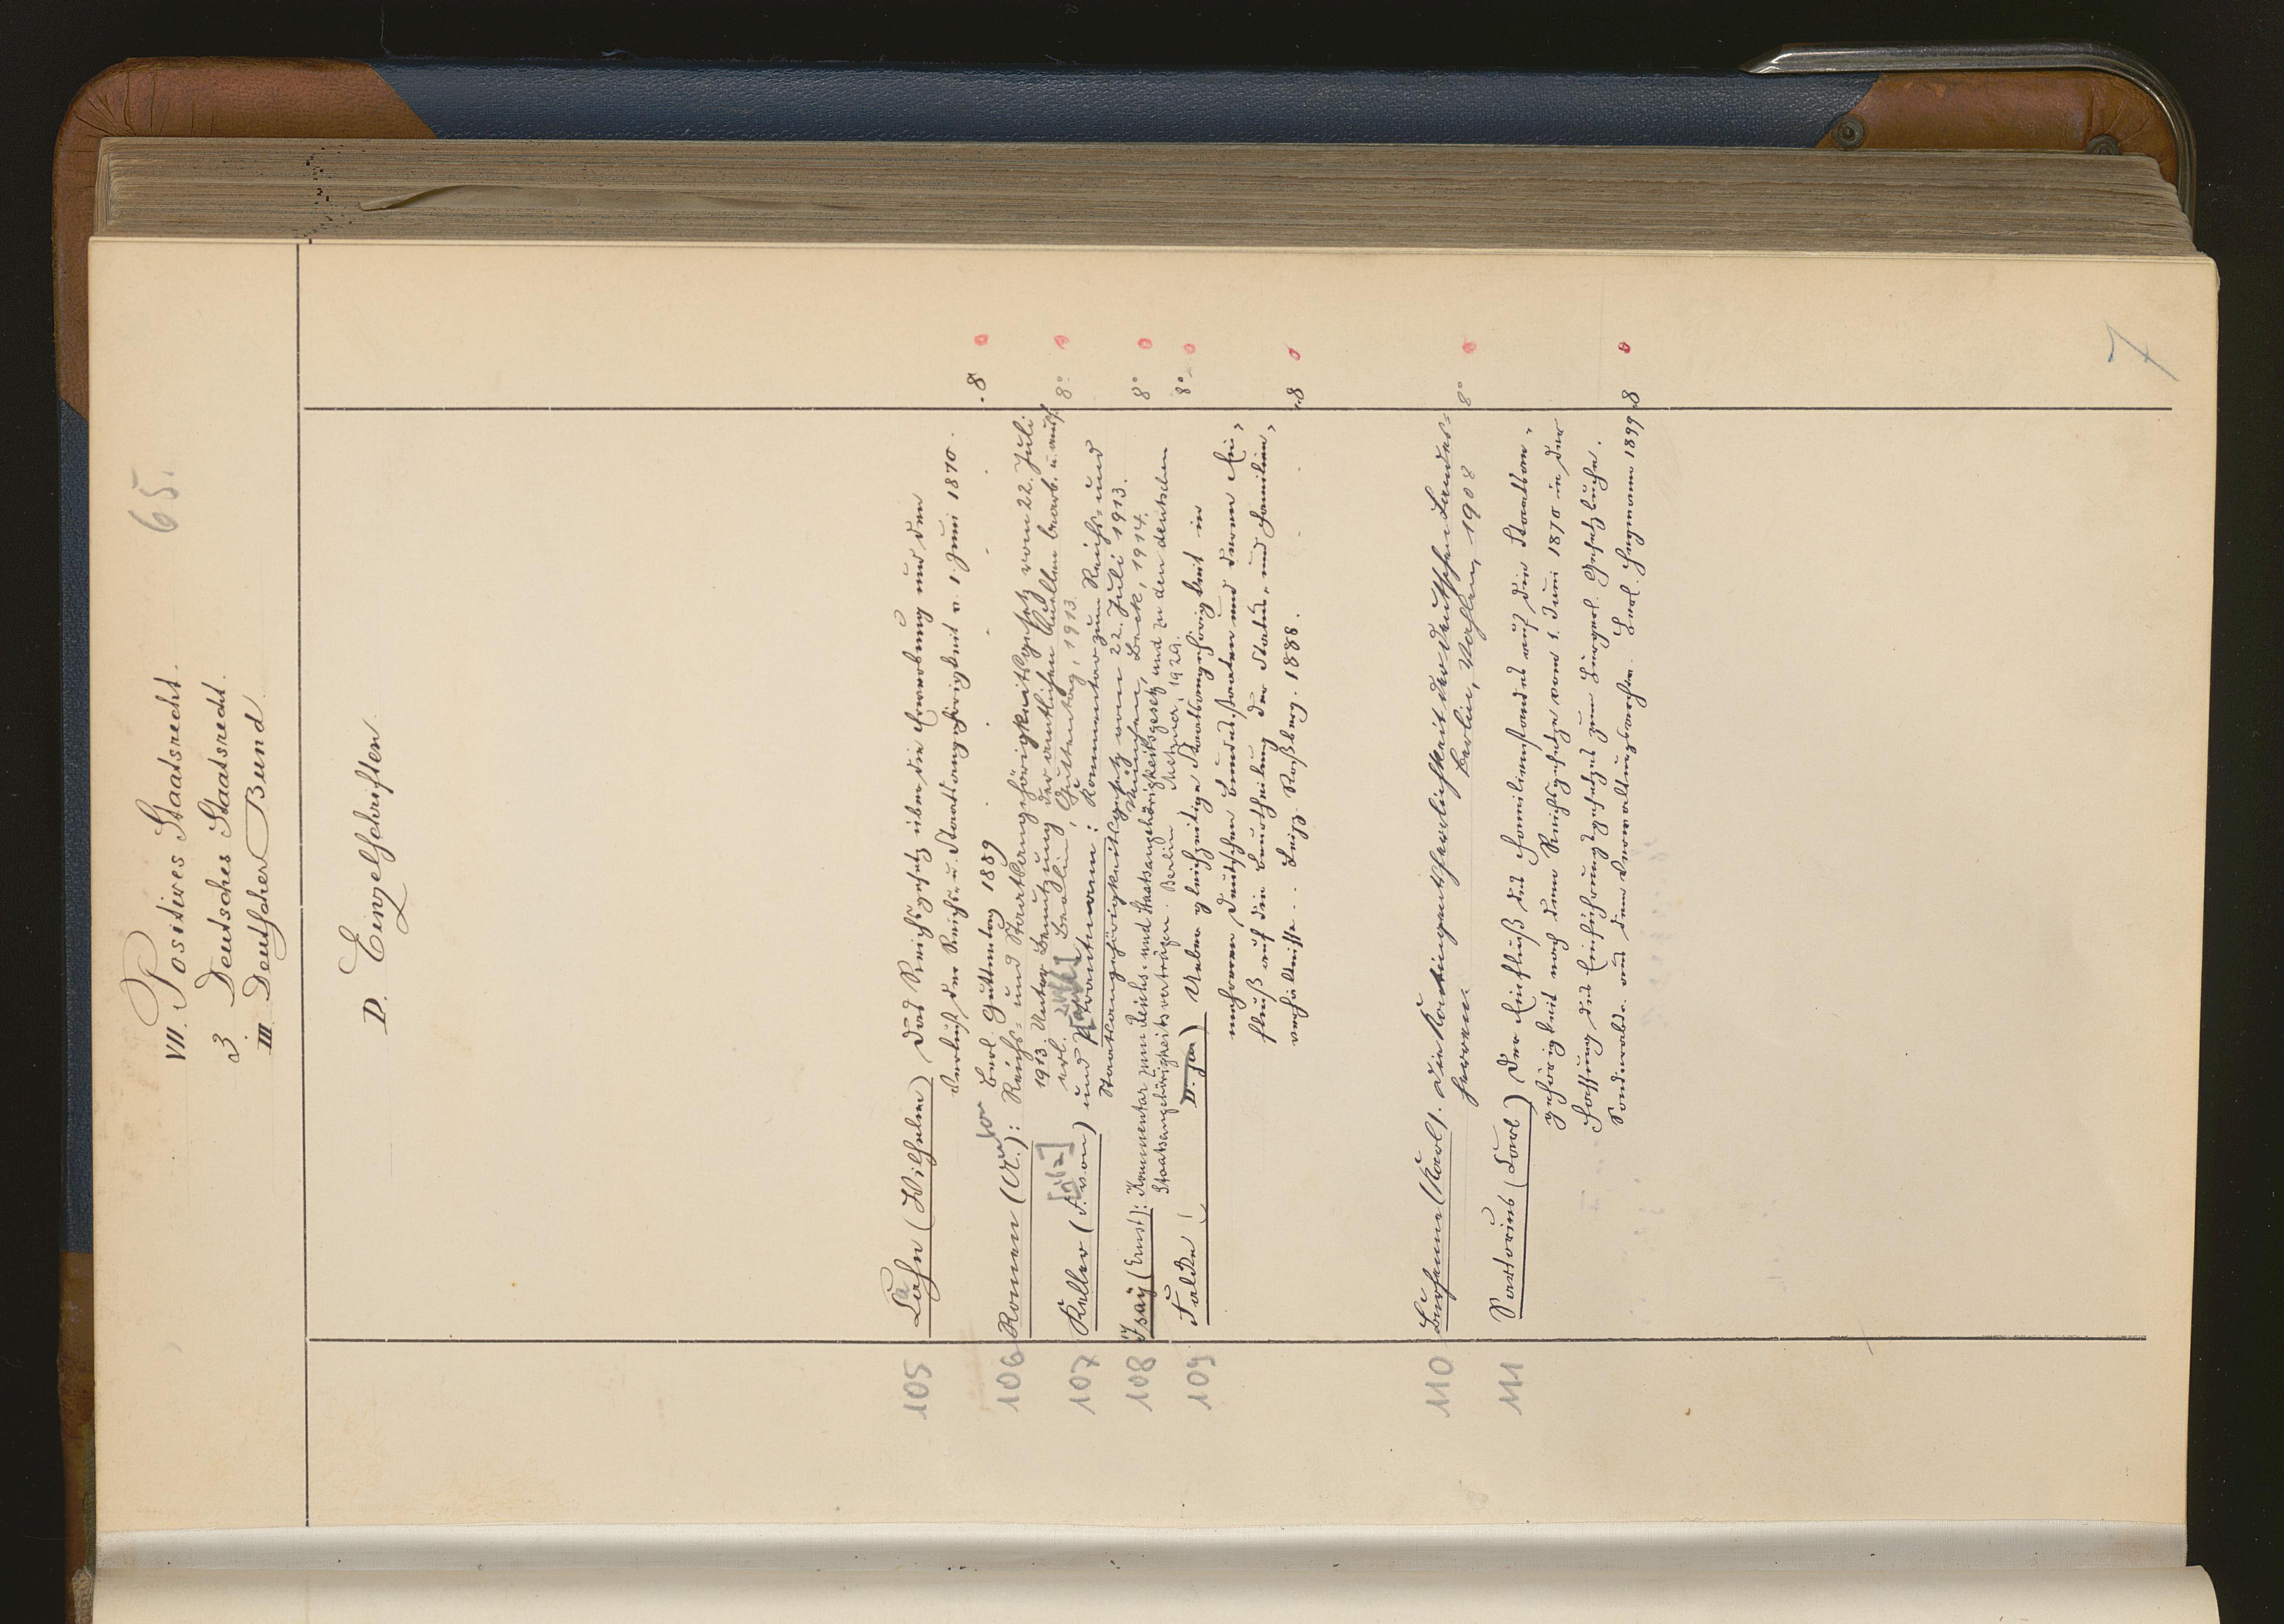 65.
VII. Positives Staatsrecht.
3. Deutsches Staatsrecht.
III. Deutscher Bund.
D. Einzelschriften.
105 Cahn (Wilhelm) Das Reichsgesetz über die Erwerbung und den
Verlust der Reichs- u. Staatsangehörigkeit v. 1. Juni 1870.
Berl. Guttentag 1889 8
106 Romen (A.): Reichs- und Staatsangehörigkeitsgesetz vom 22. Juli
1913. Unter Benutzung der amtlichen Quellen bearb. u. ausf.
erl. Berlin, Guttentag, 1913. 8°
107 Keller (F. von) und Trautmann: Kommentar zum Reichs- und
[Fritz]
Staatsangehörigkeitsgesetz vom 22. Juli 1913.
München, Beck, 1914. 8°
108 Isaÿ (Ernst): Kommentar zum Reichs- und Staatsangehörigkeitsgesetz und zu den deutschen
Staatsangehörigkeitsverträgen. Berlin 1929. 8°
109 Falcke Ueber gleichzeitige Staatsangehörigkeit in
mehreren deutschen Bundesstaaten und deren Ein-
fluß auf die Beurtheilung der Status- und Familien-
verhältnisse. Leipz. Roßberg. 1888. 8
110 Bornhak (Karl). Die deutschen Landes-
herren. Berlin, Vahlen, 1908 8°
111 Sartorius (Carl) Der Einfluß des Familienstandes auf die Staatsan-
gehörigkeit nach dem Reichsgesetze vom 1. Juni 1870 in der
Fassung des Einführungsgesetzes zum Bürgerl. Gesetzbuche.
Sonderabdr. aus dem Verwaltungsarchiv. Berl. Heymann 1899 8
7